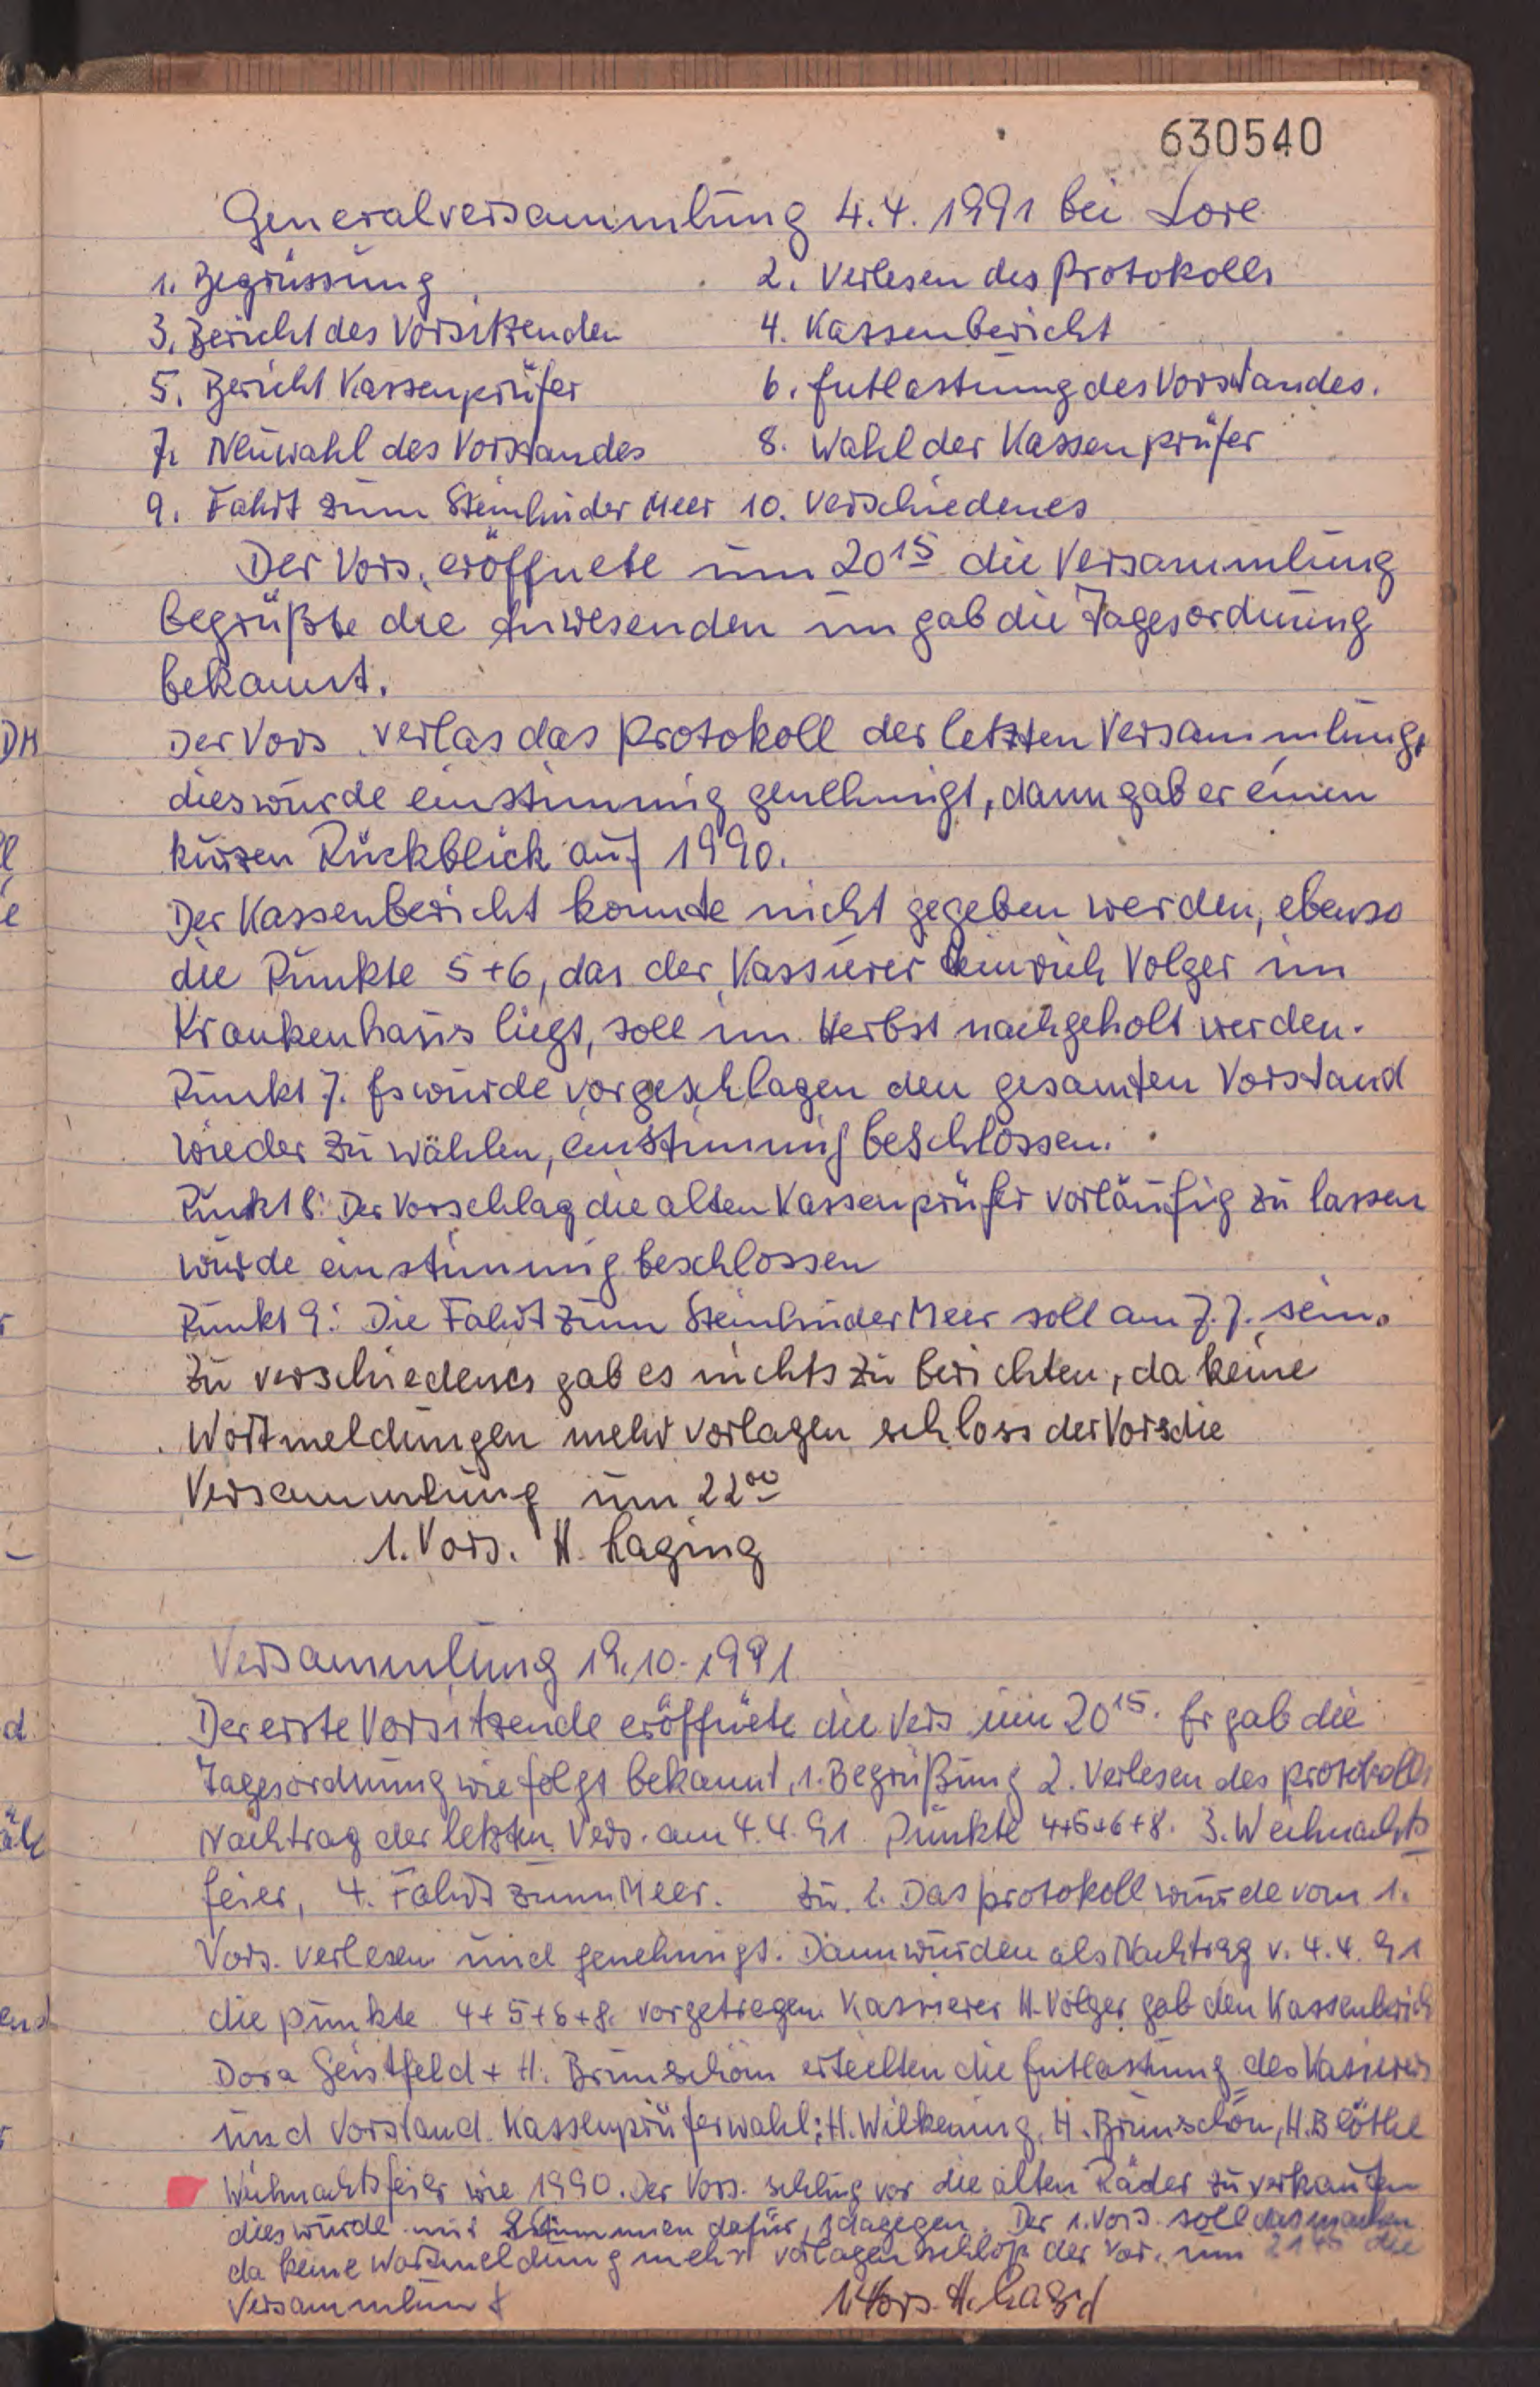 630540
Generalversammlung 4.4.1991 bei Lore
1. Begrüssung 2. Verlesen des Protokolls
3. Bericht des Vorsitzenden 4. Kassenbericht
5. Bericht Kassenprüfer 6. Entlastung des Vorstandes.
7. Neuwahl des Vorstandes 8. Wahl der Kassenprüfer
9. Fahrt zum Steinhuder Meer 10. Verschiedenes
Der Vors. eröffnete um 20¹⁵ die Versammlung
begrüßte die Anwesenden un gab die Tagesordnung
bekannt.
Der Vors. verlas das Protokoll der letzten Versammlung,
dies wurde einstimmig genehmigt, dann gab er einen
kurzen Rückblick auf 1990.
Der Kassenbericht konnte nicht gegeben werden, ebenso
die Punkte 5+6, das der Kassierer Heinrich Volger im
Krankenhaus liegt, soll im Herbst nachgeholt werden.
Punkt 7. Es wurde vorgeschlagen den gesamten Vorstand
wieder zu wählen, einstimmig beschlossen.
Punkt 8: Der Vorschlag die alten Kassenprüfer vorläufig zu lassen
wurde einstimmig beschlossen
Punkt 9: Die Fahrt zum Steinhuder Meer soll am 7.7. sein.
Zu verschiedenes gab es nichts zu berichten, da keine
Wortmeldungen mehr vorlagen schloss der Vors die
Versammlung um 22⁰⁰
1. Vors. H. Laging
Versammlung 19.10.1991
Der erste Vorsitzende eröffnete die Vers um 20¹⁵. Er gab die
Tagesordnung wie folgt bekannt, 1. Begrüßung 2. Verlesen des Protokolls
Nachtrag der letzten Vers. am 4.4.91 Punkte 4+5+6+8. 3. Weihnachts
feier, 4. Fahrt zum Meer. Zu. 2. Das Protokoll wurde vom 1.
Vors. verlesen und genehmigt. Dann wurden als Nachtrag v. 4.4.91
die Punkte 4+5+6+8. vorgetragen. Kassierer H. Volger gab den Kassenberich
Dora Geistfeld + H. Brunschön erteilten die Entlastung des Kassierers
und Vorstand. Kassenprüferwahl: H. Wilkening, H. Brunschön, H. Blöthe
Weihnachtsfeier wie 1990. Der Vors. schlug vor die alten Räder zu verkaufen
dies wurde mit Stimmen dafür, 1 dagegen. Der 1. Vors. soll das machen
da keine Wortmeldung mehr vorlagen schloß der Vor. um die
Versammlung
1. Vors. H.